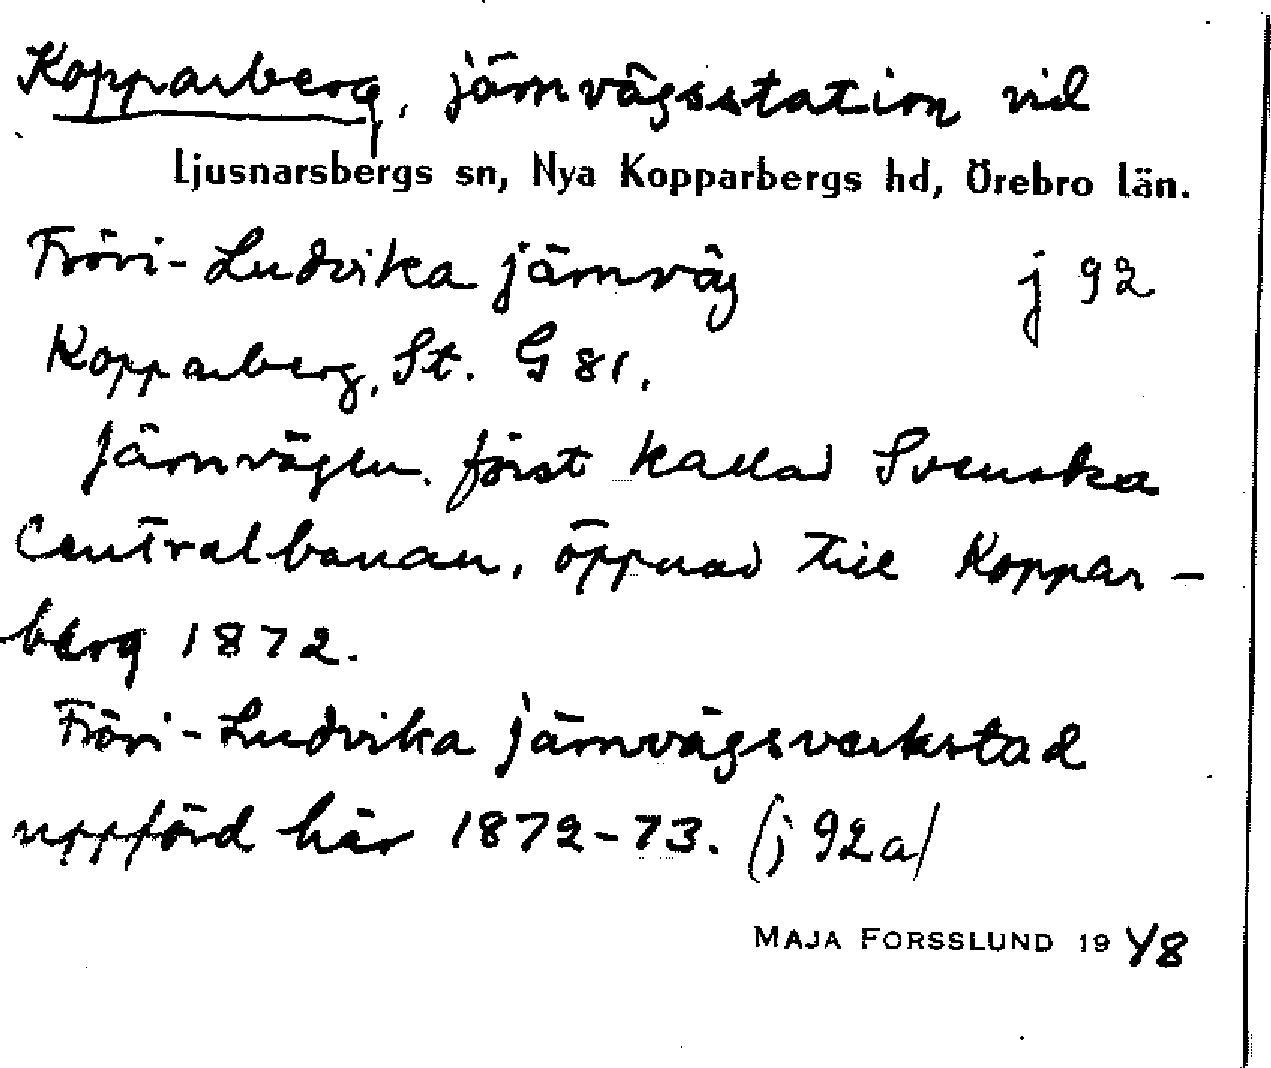 Kopparberg, järnvägsstation vid
Ljusnarsbergs sn, Nya Kopparbergs hd, Örebro län.
Frövi-Ludvika järnväg j 92
Kopparberg, St. G 81.
Järnvägen, först kallad Svenska
Centralbanan, öppnad till Koppar-
berg 1872.
Frövi-Ludvika järnvägsverkstad
uppförd här 1872-73. (j 92a)
MAJA FORSSLUND 1948